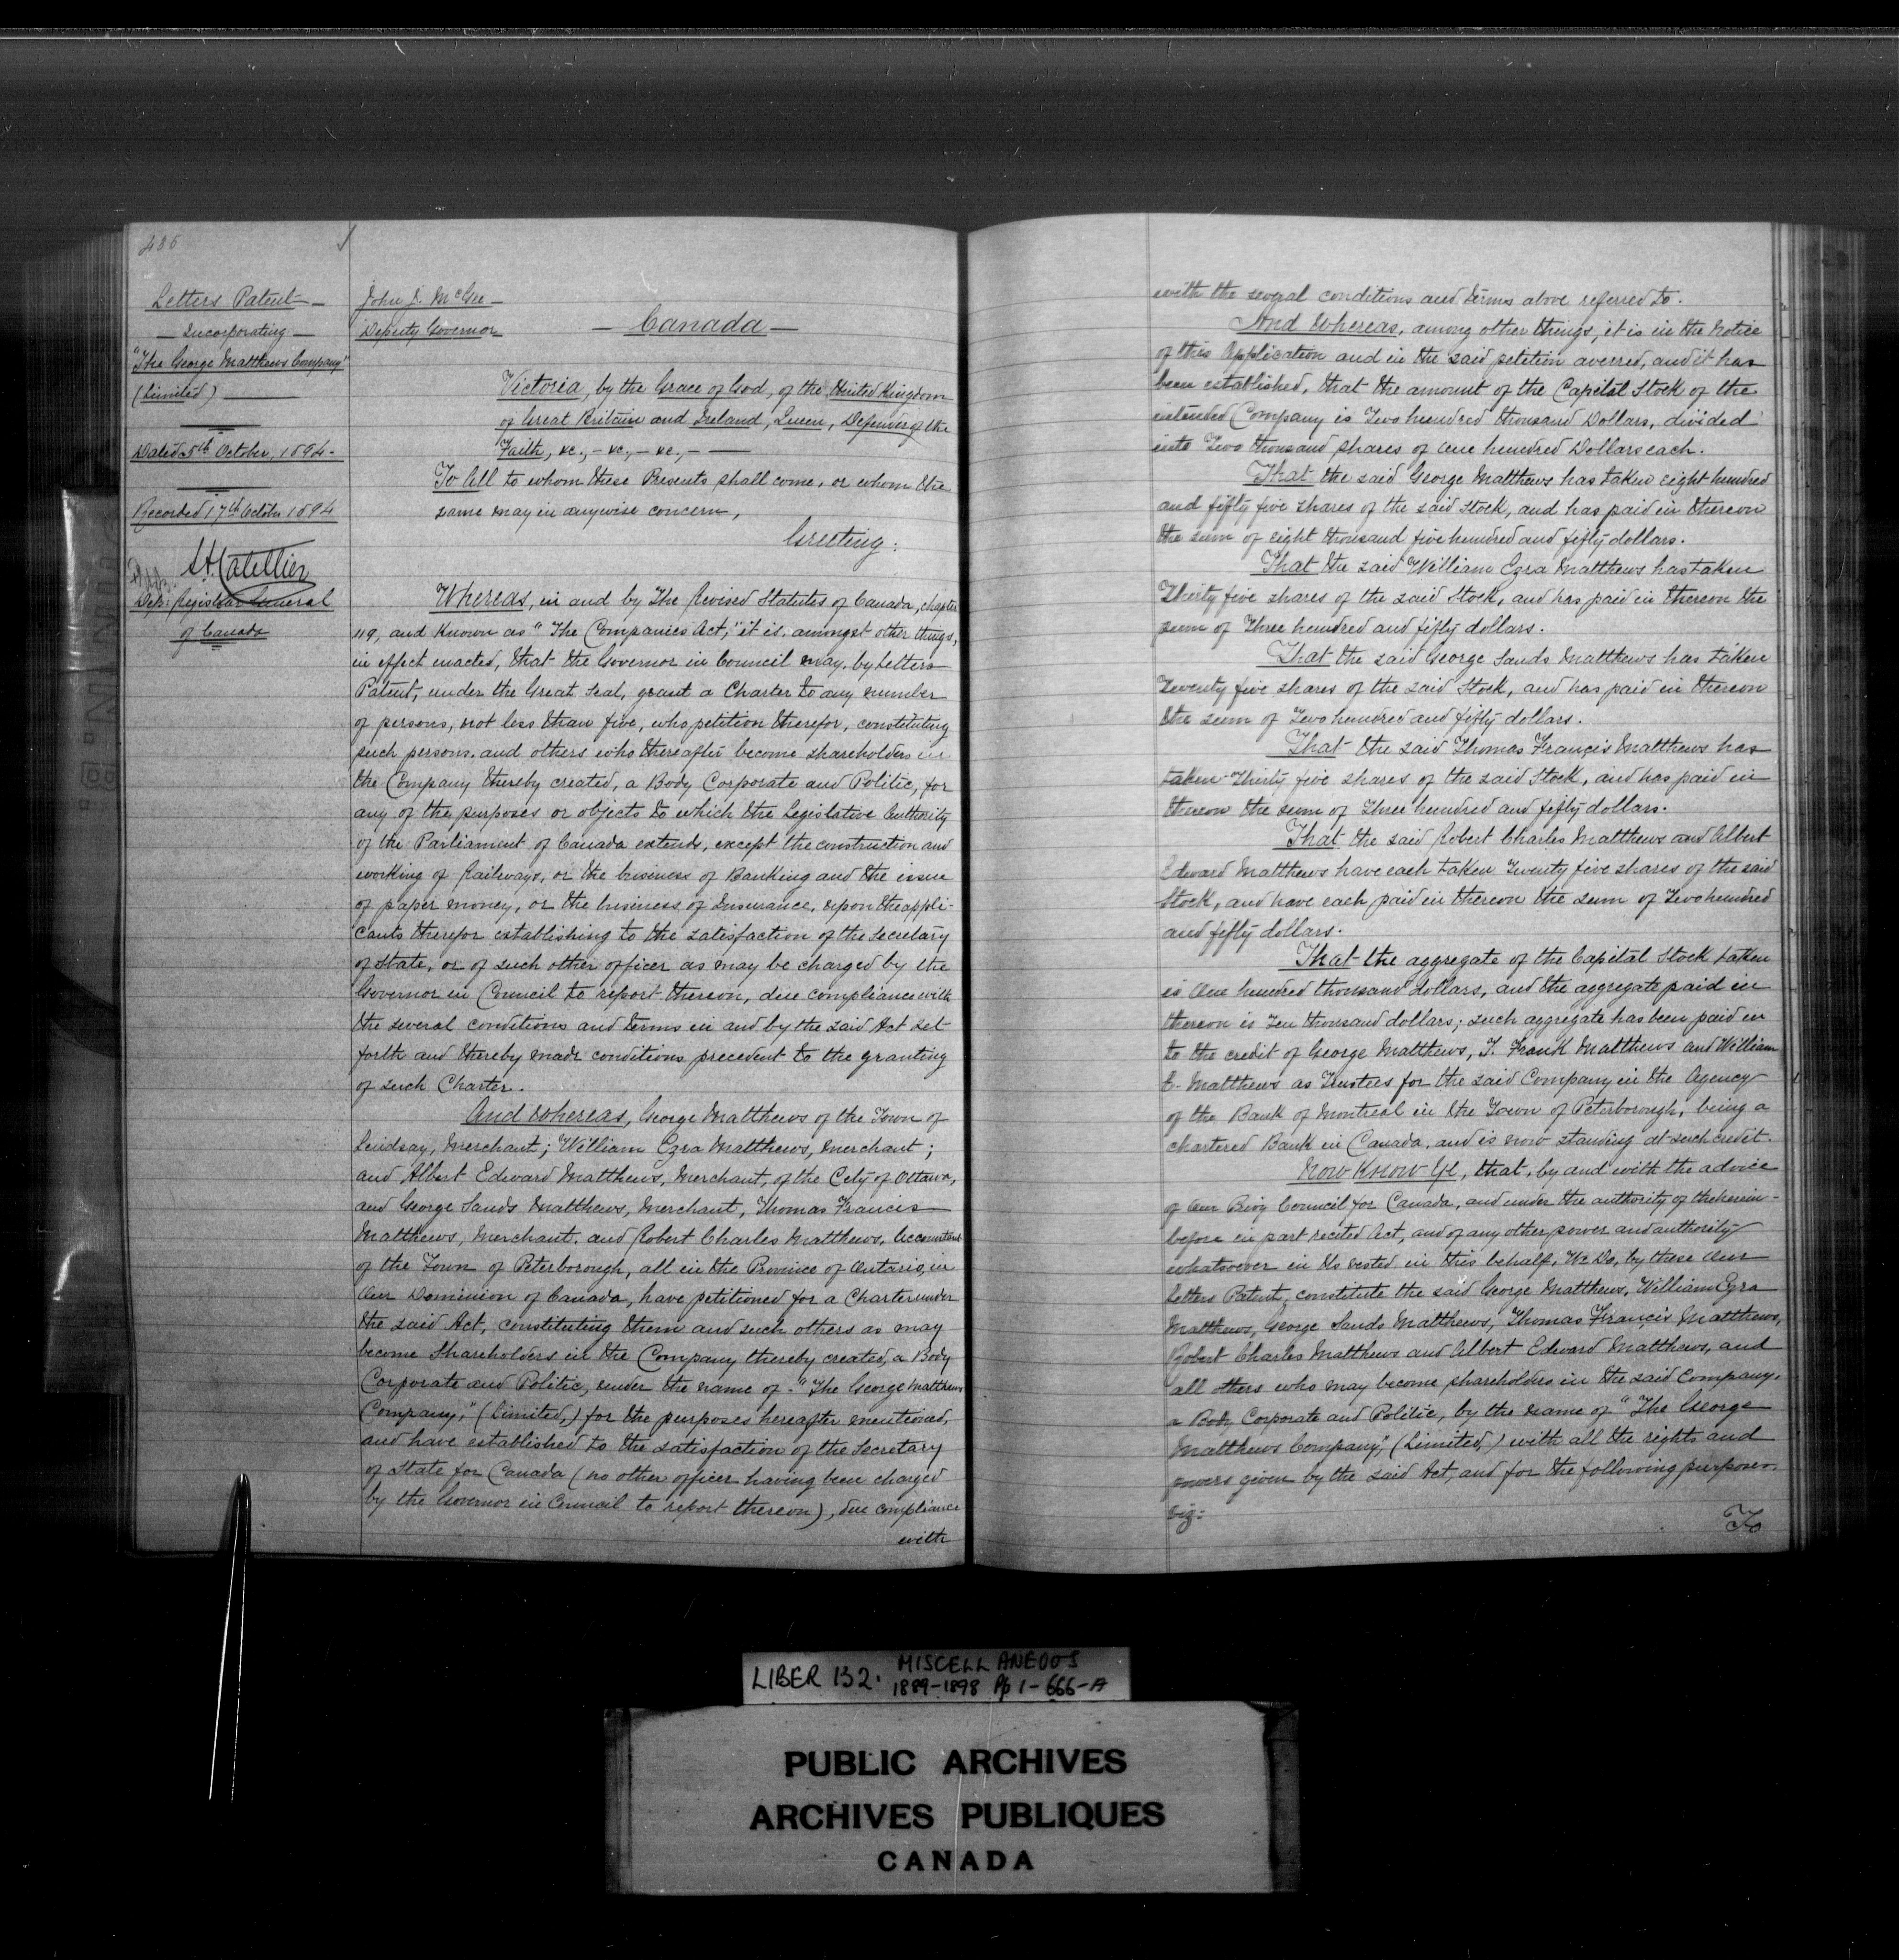 436
Letters Patent —
— Incorporating —
"The George Matthews Company"
(Limited)
Dated 5th October, 1894 -
Recorded 17th October 1894
Dep: Registrar General
of Canada
John J. McGee —
Deputy Governor
— Canada —
Victoria, by the Grace of God, of the United Kingdom
of Great Britain and Ireland, Queen, Defender of the
Faith, &c., - &c., - &c., - —
To All to whom these Presents shall come, or whom the
same may in anywise concern,
Greeting:
Whereas, in and by The Revised Statutes of Canada, chapter
119, and known as "The Companies Act," it is, amongst other things,
in effect enacted, that the Governor in Council may, by Letters
Patent, under the Great Seal, grant a Charter to any number
of persons, not less than five, who petition therefor, constituting
such persons, and others who thereafter become shareholders in
the Company thereby created, a Body Corporate and Politic, for
any of the purposes or objects to which the Legislative Authority
of the Parliament of Canada extends, except the construction and
working of Railways, or the business of Banking and the issue
of paper money, or the business of Insurance, upon the appli-
cants therefor establishing to the satisfaction of the Secretary
of State, or of such other officer as may be charged by the
Governor in Council to report thereon, due compliance with
the several conditions and terms in and by the said Act set
forth and thereby made conditions precedent to the granting
of such Charter.
And Whereas, George Matthews of the Town of
Lindsay, Merchant; William Ezra Matthews, Merchant;
and Albert Edward Matthews, Merchant, of the City of Ottawa,
and George Sands Matthews, Merchant, Thomas Francis
Matthews, Merchant, and Robert Charles Matthews, Accountant
of the Town of Peterborough, all in the Province of Ontario, in
Our Dominion of Canada, have petitioned for a Charter under
the said Act, constituting them and such others as may
become Shareholders in the Company thereby created, a Body
Corporate and Politic, under the name of - "The George Matthews
Company," (Limited,) for the purposes hereafter mentioned,
and have established to the satisfaction of the Secretary
of State for Canada (no other officer having been charged
by the Governor in Council to report thereon), due compliance
with
with the several conditions and terms above referred to.
And Whereas, among other things, it is in the Notice
of this Application and in the said petition averred, and it has
been established, that the amount of the Capital Stock of the
intended Company is Two hundred thousand Dollars, divided
into Two thousand shares of One hundred Dollars each.
That the said George Matthews has taken eight hundred
and fifty five shares of the said Stock, and has paid in thereon
the sum of eight thousand five hundred and fifty dollars.
That the said William Ezra Matthews has taken
Thirty five shares of the said Stock, and has paid in thereon the
sum of Three hundred and fifty dollars.
That the said George Sands Matthews has taken
Twenty five shares of the said Stock, and has paid in thereon
the sum of Two hundred and fifty dollars.
That the said Thomas Francis Matthews has
taken Thirty five shares of the said Stock, and has paid in
thereon the sum of Three hundred and fifty dollars.
That the said Robert Charles Matthews and Albert
Edward Matthews have each taken Twenty five shares of the said
Stock, and have each paid in thereon the sum of Two hundred
and fifty dollars.
That the aggregate of the Capital Stock taken
is One hundred thousand dollars, and the aggregate paid in
thereon is Ten thousand dollars; such aggregate has been paid in
to the credit of George Matthews, T. Frank Matthews and William
E. Matthews as Trustees for the said Company in the Agency
of the Bank of Montreal in the Town of Peterborough, being a
chartered Bank in Canada, and is now standing at such credit.
Now Know Ye, that, by and with the advice
of Our Privy Council for Canada, and under the authority of the herein-
before in part recited Act, and of any other power and authority
whatsoever in Us vested in this behalf, We Do, by these Our
Letters Patent, constitute the said George Matthews, William Ezra
Matthews, George Sands Matthews, Thomas Francis Matthews,
Robert Charles Matthews and Albert Edward Matthews, and
all others who may become shareholders in the said Company,
a Body Corporate and Politic, by the name of "The George
Matthews Company," (Limited,) with all the rights and
powers given by the said Act, and for the following purposes,
viz:
To
LIBER 132. MISCELLANEOUS
1889-1898 Pp 1-666-A
PUBLIC ARCHIVES
ARCHIVES PUBLIQUES
CANADA